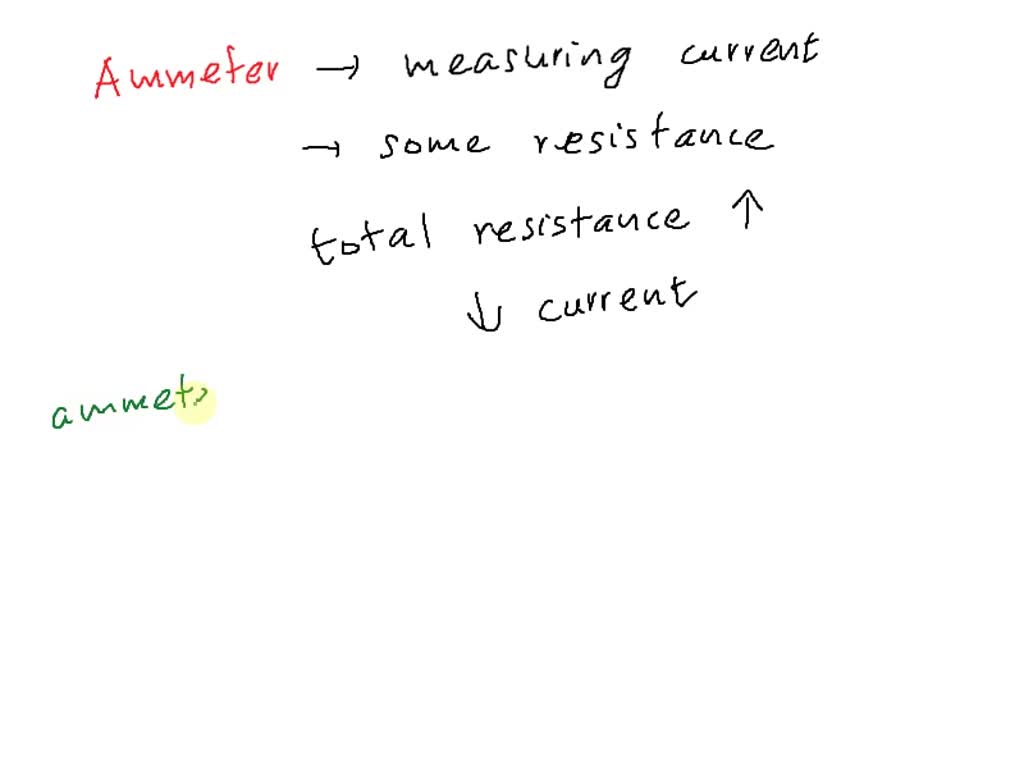 Ammeter → measuring current
→ some resistance
total resistance ↑
↓ current
ammet